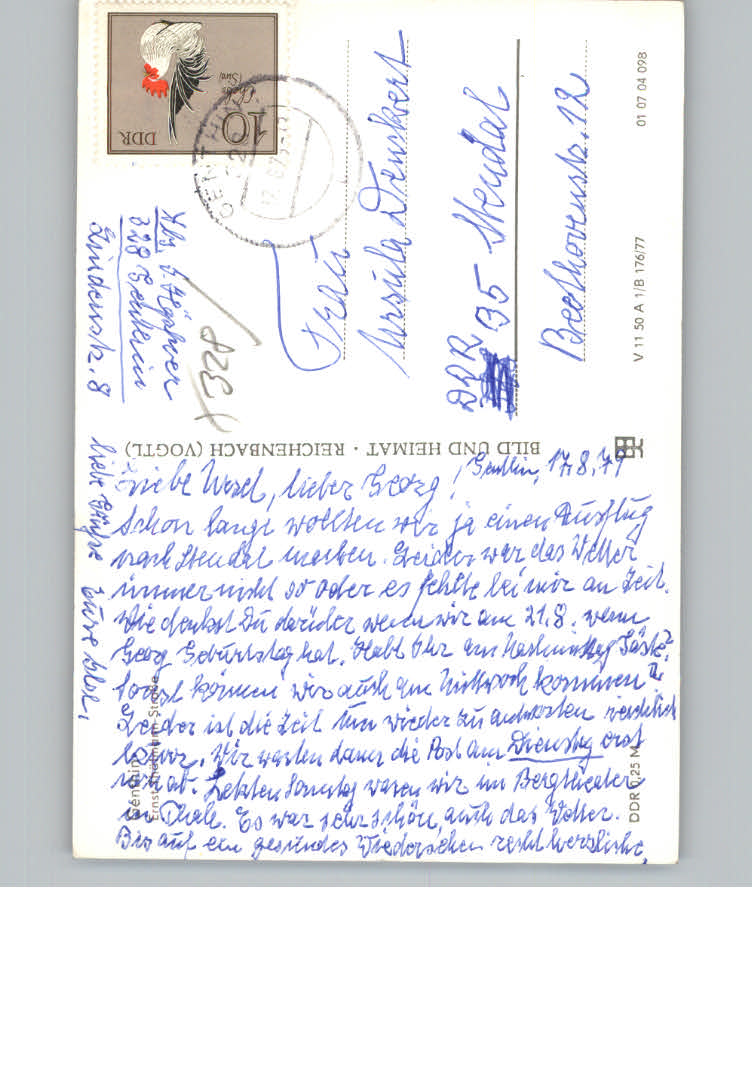 Genthin, 17.8.79
Liebe Ursel, lieber Georg!
Schon lange wollten wir ja einen Ausflug
nach Stendal machen. Leider war das Wetter
immer nicht so oder es fehlte bei mir an Zeit.
Wie denkst Du darüber wenn wir am 21.8. wenn
Georg Geburtstag hat. Habt Ihr am Nachmittag Gäste?
Sonst können wir auch am Mittwoch kommen?
Leider ist die Zeit zum wieder zu antworten reichlich
kurz. Wir warten dann die Post am Dienstag erst
mal ab. Letzten Sonntag waren wir im Bergtheater
in Thale. Es war sehr schön, auch das Wetter.
Bis auf ein gesundes Wiedersehen recht herzliche,
liebe Grüße Eure
Abs.
328 Genthin
Lindenstr. 8
328
Frau
Ursula
DDR
35 Stendal
Beethovenstr. 12
DDR
10
GENTHIN
BILD UND HEIMAT · REICHENBACH (VOGTL)
Genthin
Ernst-Thälmann-Straße
DDR 0,25 M
V 11 50 A 1/B 176/77
01 07 04 098